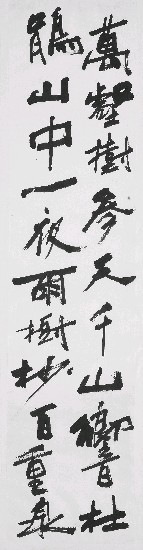 萬壑樹參天千山響杜
鵑山中一夜雨樹杪百重泉